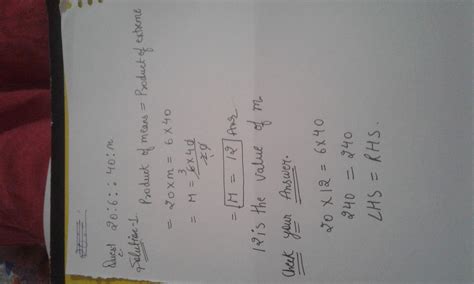 Quest 20:6 :: 40:m
Solution-1
Product of means = Product of extreme
= 20 x m = 6 x 40
= M = 6x40 / 20
= M = 12 Ans
12 is the value of m
Check your Answer.
20 x 12 = 6x40
240 = 240
LHS = RHS.